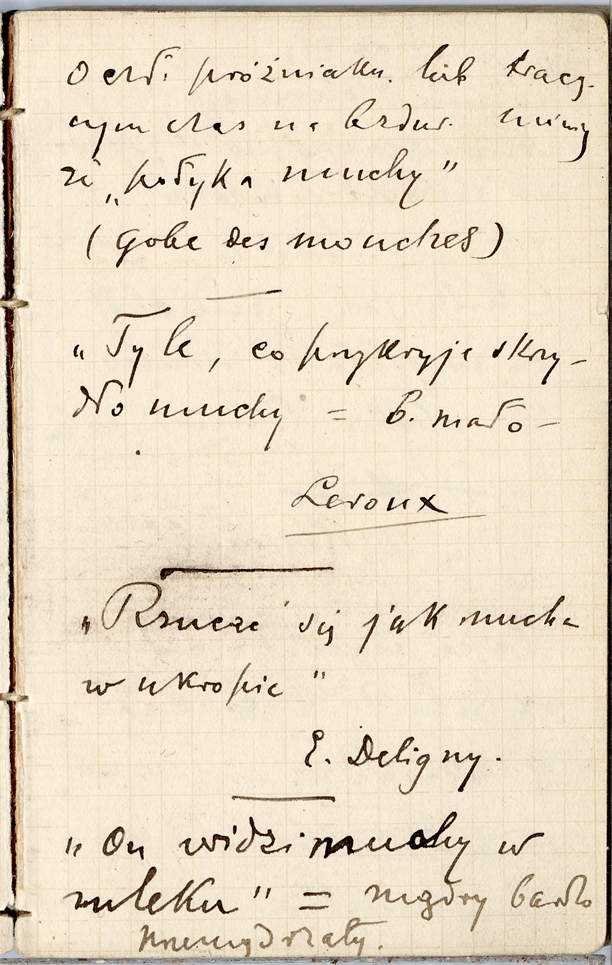 O próżniaku. lub tracą-
cym czas na bzdur. mówią
że „połyka muchy"
(gobe des mouches)
„Tyle, co przykryje skrzy-
dło muchy = b. mało -
Leroux
„Rzucać się jak mucha
w ukropie"
E. Deligny.
„On widzi muchy w
mleku" = mądry bardzo
przemądrzały.